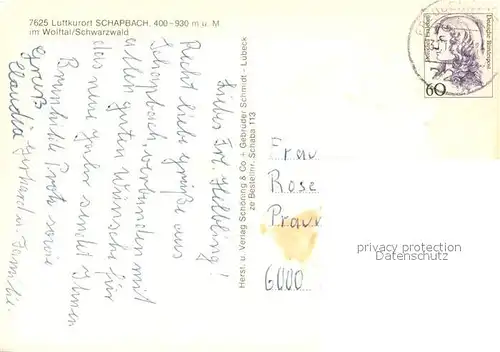 7625 Luftkurort SCHAPBACH, 400-930 m ü. M
im Wolftal/Schwarzwald
Liebes Frl. Helbling!
Recht liebe Grüße aus
Schapbach, verbunden mit
allen guten Wünschen für
das neue Jahr sendet Ihnen
Brunhilde Protz sowie
Gruß Gerhard u. Familie.
Claudia
Herst. u. Verlag Schöning & Co + Gebrüder Schmidt - Lübeck
ze Bestellnr. Schaba 113
Deutsche Bundespost
60
Frau
Rose
6000
privacy protection
Datenschutz